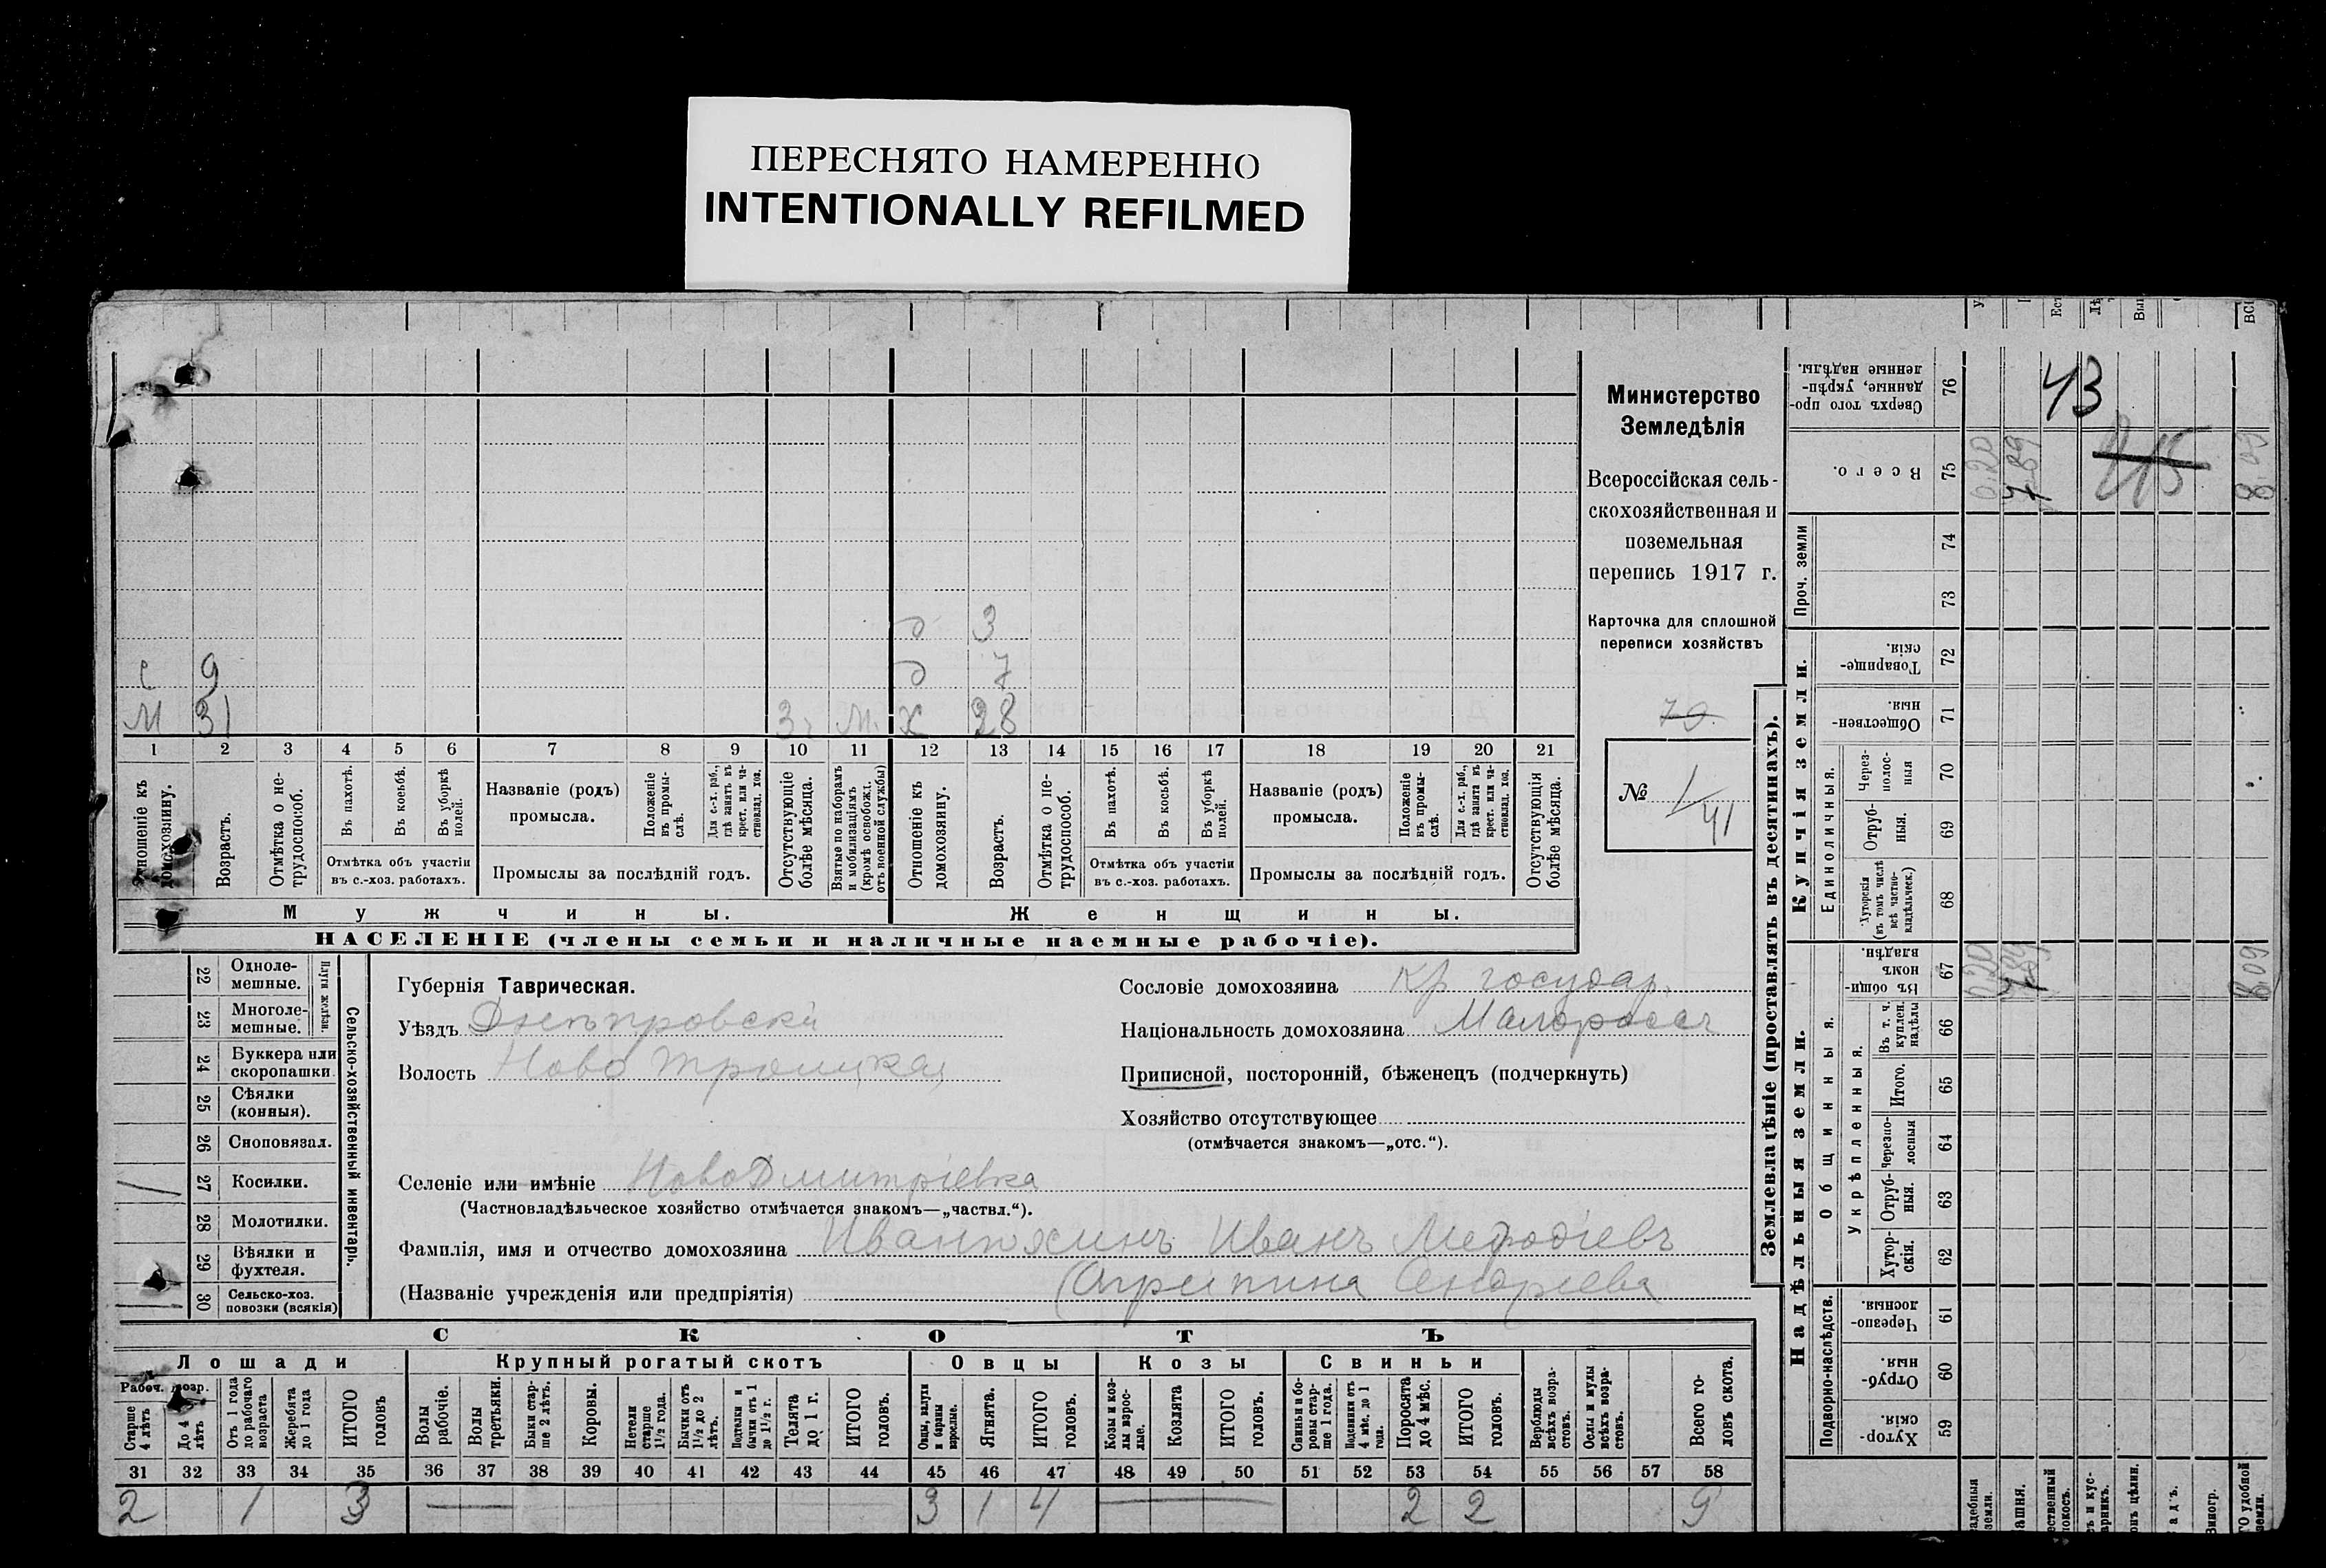 ПЕРЕСНЯТО НАМЕРЕННО
INTENTIONALLY REFILMED
Министерство
Земледѣлія
Всероссійская сель-
скохозяйственная и
поземельная
перепись 1917 г.
Карточка для сплошной
переписи хозяйствъ
79
№ 1/41
д 3
с 9 д 7
М 31 3 г М. Ж 28
1 2 3 4 5 6 7 8 9 10 11 12 13 14 15 16 17 18 19 20 21
Отношеніе къ домохозяину.
Возрастъ.
Отмѣтка о не-трудоспособ.
Въ пахотѣ.
Въ косьбѣ.
Въ уборкѣ полей.
Отмѣтка объ участіи
въ с.-хоз. работахъ.
Названіе (родъ)
промысла.
Положеніе въ промы-слѣ.
Для с.-х. раб., гдѣ занятъ въ крест. или ча-стновлад. хоз.
Промыслы за послѣдній годъ.
Отсутствующіе болѣе мѣсяца.
Взятые по наборамъ и мобилизаціямъ (кромѣ освобожд. отъ военной службы)
Отношеніе къ домохозяину.
Возрастъ.
Отмѣтка о не-трудоспособ.
Въ пахотѣ.
Въ косьбѣ.
Въ уборкѣ полей.
Отмѣтка объ участіи
въ с.-хоз. работахъ.
Названіе (родъ)
промысла.
Положеніе въ промы-слѣ.
Для с.-х. раб., гдѣ занята въ крест. или ча-стновлад. хоз.
Промыслы за послѣдній годъ.
Отсутствующія болѣе мѣсяца.
Мужчины.
Женщины.
НАСЕЛЕНІЕ (члены семьи и наличные наемные рабочіе).
22 Одноле-мешные.
23 Многоле-мешные.
Плуги желѣзн.
24 Буккера или скоропашки.
25 Сѣялки (конныя).
26 Сноповязал.
27 Косилки.
28 Молотилки.
29 Вѣялки и фухтеля.
30 Сельско-хоз. повозки (всякія)
Сельско-хозяйственный инвентарь.
Губернія Таврическая.
Уѣздъ Днѣпровскій
Волость Ново Троицкая
Селеніе или имѣніе НовоДмитріевка
(Частновладѣльческое хозяйство отмѣчается знакомъ—„частвл.“).
Фамилія, имя и отчество домохозяина Иванюхинъ Иванъ Мефодіевъ
(Названіе учрежденія или предпріятія) (Агрипина Андріева
Сословіе домохозяина кр государ.
Національность домохозяина Малороссъ
Приписной, посторонній, бѣженецъ (подчеркнуть)
Хозяйство отсутствующее
(отмѣчается знакомъ—„отс.“).
СКОТЪ
Лошади
Крупный рогатый скотъ
Овцы
Козы
Свиньи
Рабоч. возр.
Старше 4 лѣтъ
До 4 лѣтъ
Отъ 1 года до рабочаго возраста
Жеребята до 1 года
ИТОГО головъ
Волы рабочіе.
Волы третьяки.
Быки стар-ше 2 лѣтъ.
Коровы.
Нетели старше 1½ года.
Бычки отъ 1½ до 2 лѣтъ.
Подтелки и бычки отъ 1 до 1½ г.
Телята до 1 г.
ИТОГО головъ.
Овцы, валухи и бараны взрослые.
Ягнята.
ИТОГО головъ.
Козы и коз-лы взрос-лые.
Козлята
ИТОГО головъ.
Свиньи и бо-ровы стар-ше 1 года.
Подсвинки отъ 4 мѣс. до 1 года.
Поросята до 4 мѣс.
ИТОГО головъ.
Верблюды всѣхъ возра-стовъ.
Ослы и мулы всѣхъ возра-стовъ.
Всего го-ловъ скота.
31 32 33 34 35 36 37 38 39 40 41 42 43 44 45 46 47 48 49 50 51 52 53 54 55 56 57 58
2 1 3 3 1 4 2 2 9
Землевладѣніе (проставлять въ десятинахъ).
Надѣльныя земли.
Купчія земли.
Проч. земли
Подворно-наслѣдств.
Общинныя.
Укрѣпленныя.
Единоличныя.
Хутор-скія. 59
Отруб-ныя. 60
Черезпо-лосныя. 61
Хутор-скія. 62
Отруб-ныя. 63
Черезпо-лосныя 64
Итого. 65
Въ т. ч. куплен. надѣлы 66
Въ общи-номъ владѣн. 67
Хуторскія (въ томъ числѣ всѣ частно-владѣльческ.) 68
Отруб-ныя. 69
Через-полос-ныя 70
Обществен-ныя. 71
Товарище-скія. 72
73
74
Всего. 75
Сверхъ того про-данные, укрѣп-ленные надѣлы. 76
43
215
0.20 7.89 8.09
0.20 7.89 8.09